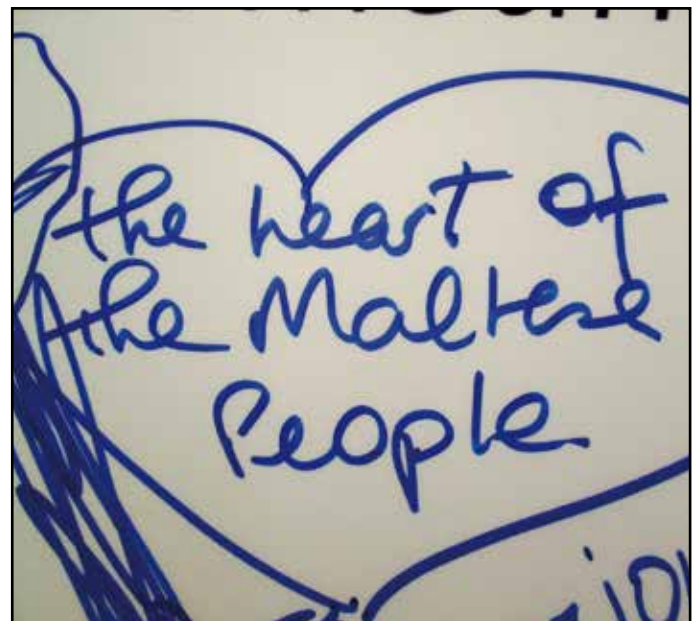 the heart of
the Maltese
People